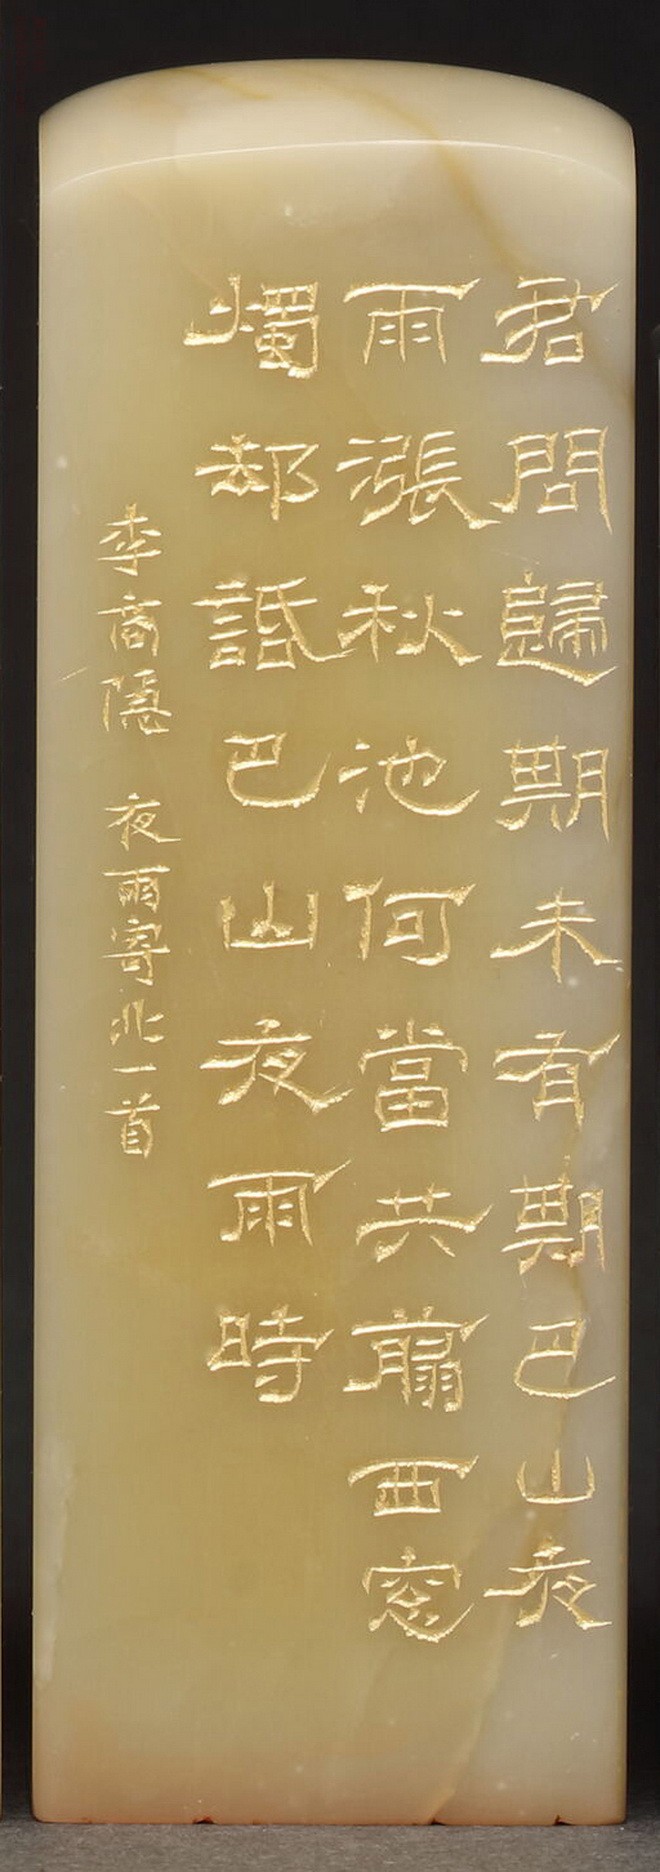 君問歸期未有期巴山夜
雨漲秋池何當共翦西窓
燭却話巴山夜雨時
李商隱 夜雨寄北一首